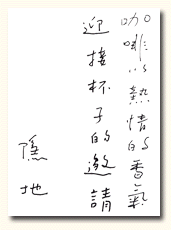 咖啡以熱情的香氣
迎接杯子的邀請
隱地